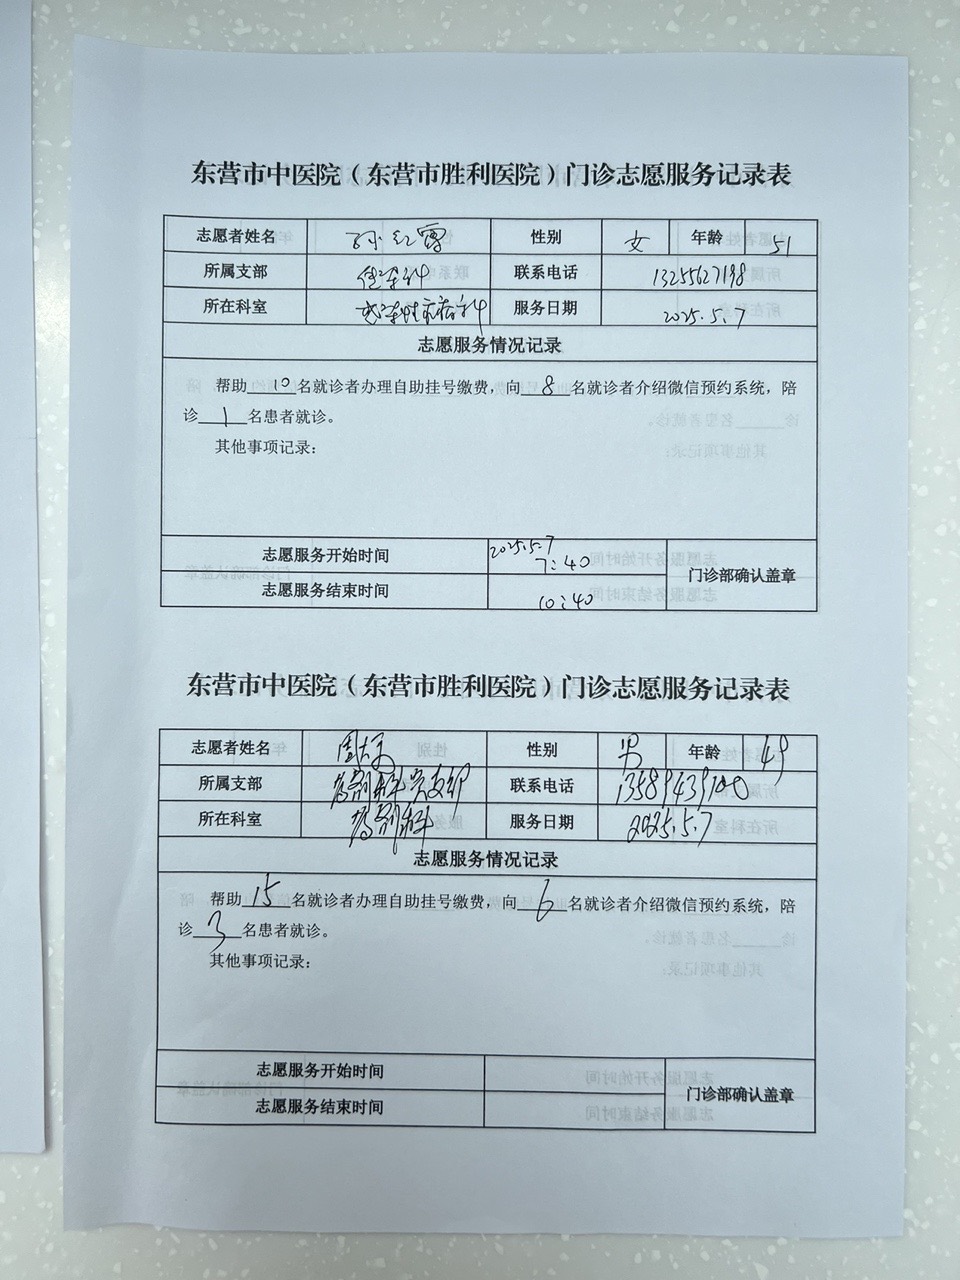 东营市中医院（东营市胜利医院）门诊志愿服务记录表
志愿者姓名 孙红霞 性别 女 年龄 51
所属支部 联系电话 13255627198
所在科室 服务日期 2025.5.7
志愿服务情况记录
帮助 10 名就诊者办理自助挂号缴费，向 8 名就诊者介绍微信预约系统，陪
诊 1 名患者就诊。
其他事项记录：
志愿服务开始时间 2025.5.7 7:40 门诊部确认盖章
志愿服务结束时间 10:40
东营市中医院（东营市胜利医院）门诊志愿服务记录表
志愿者姓名 性别 男 年龄 49
所属支部 联系电话
所在科室 服务日期 2025.5.7
志愿服务情况记录
帮助 15 名就诊者办理自助挂号缴费，向 6 名就诊者介绍微信预约系统，陪
诊 3 名患者就诊。
其他事项记录：
志愿服务开始时间 门诊部确认盖章
志愿服务结束时间